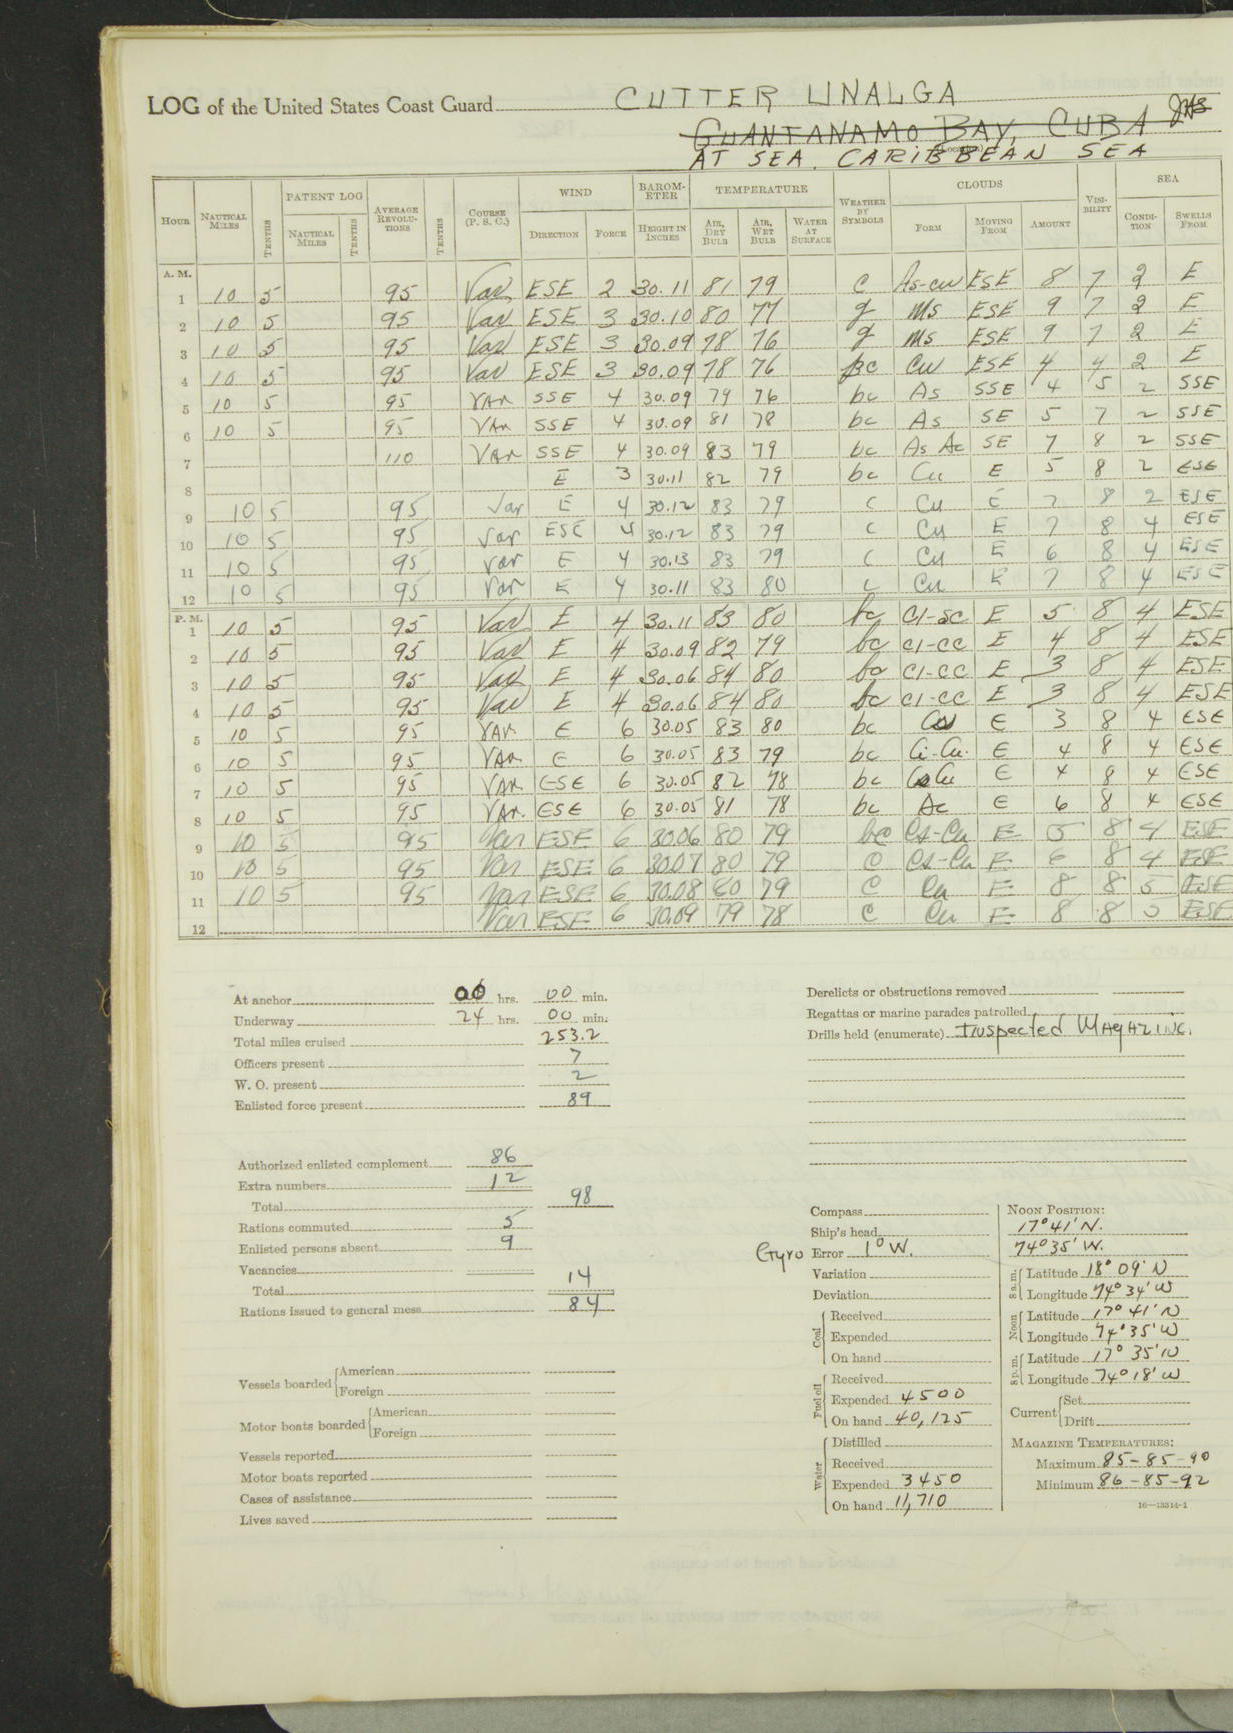 LOG of the United States Coast Guard CUTTER UNALGA
GUANTANAMO BAY, CUBA
AT SEA. CARIBBEAN SEA
(Location)
HOUR NAUTICAL MILES TENTHS PATENT LOG NAUTICAL MILES TENTHS AVERAGE REVOLUTIONS TENTHS COURSE (P. S. C.) WIND DIRECTION FORCE BAROMETER HEIGHT IN INCHES TEMPERATURE AIR, DRY BULB AIR, WET BULB WATER AT SURFACE WEATHER BY SYMBOLS CLOUDS FORM MOVING FROM AMOUNT VISIBILITY SEA CONDITION SWELLS FROM
A. M.
1 10 5 95 Var ESE 2 30.11 81 79 c As-cu ESE 8 7 2 E
2 10 5 95 Var ESE 3 30.10 80 77 g Ms ESE 9 7 2 E
3 10 5 95 Var ESE 3 30.09 78 76 g Ms ESE 9 7 2 E
4 10 5 95 Var ESE 3 30.09 78 76 bc Cu ESE 4 4 2 E
5 10 5 95 VAR SSE 4 30.09 79 76 bc As SSE 4 5 2 SSE
6 10 5 95 VAR SSE 4 30.09 81 78 bc As SE 5 7 2 SSE
7 110 VAR SSE 4 30.09 83 79 bc As Ac SE 7 8 2 SSE
8 E 3 30.11 82 79 bc Cu E 5 8 2 ESE
9 10 5 95 Var E 4 30.12 83 79 c Cu E 7 8 2 ESE
10 10 5 95 Var ESE 4 30.12 83 79 c Cu E 7 8 4 ESE
11 10 5 95 Var E 4 30.13 83 79 c Cu E 6 8 4 ESE
12 10 5 95 Var E 4 30.11 83 80 c Cu E 7 8 4 ESE
P. M.
1 10 5 95 Var E 4 30.11 83 80 bc CI-SC E 5 8 4 ESE
2 10 5 95 Var E 4 30.09 82 79 bc CI-CC E 4 8 4 ESE
3 10 5 95 Var E 4 30.06 84 80 bc CI-CC E 3 8 4 ESE
4 10 5 95 Var E 4 30.06 84 80 bc CI-CC E 3 8 4 ESE
5 10 5 95 VAR E 6 30.05 83 80 bc E 3 8 4 ESE
6 10 5 95 VAR E 6 30.05 83 79 bc Ci-Cu. E 4 8 4 ESE
7 10 5 95 VAR ESE 6 30.05 82 78 bc Cu E 4 8 4 ESE
8 10 5 95 VAR. ESE 6 30.05 81 78 bc Ac E 6 8 4 ESE
9 10 5 95 Var ESE 6 30.06 80 79 bc Cs-Cu E 5 8 4 ESE
10 10 5 95 Var ESE 6 30.07 80 79 C Cs-Cu E 6 8 4 ESE
11 10 5 95 Var ESE 6 30.08 80 79 C Cu E 8 8 5 ESE
12 Var ESE 6 30.09 79 78 C Cu E 8 8 5 ESE
At anchor 00 hrs. 00 min.
Underway 24 hrs. 00 min.
Total miles cruised 253.2
Officers present 7
W. O. present 2
Enlisted force present 89
Authorized enlisted complement 86
Extra numbers 12
Total 98
Rations commuted 5
Enlisted persons absent 9
Vacancies
Total 14
Rations issued to general mess 84
Vessels boarded American
Foreign
Motor boats boarded American
Foreign
Vessels reported
Motor boats reported
Cases of assistance
Lives saved
Derelicts or obstructions removed
Regattas or marine parades patrolled
Drills held (enumerate) Inspected MAGAZINE.
Compass
Ship's head
Gyro Error 1° W.
Variation
Deviation
Coal Received
Expended
On hand
Fuel oil Received
Expended 4500
On hand 40,125
Water Distilled
Received
Expended 3450
On hand 11,710
NOON POSITION:
17° 41' N.
74° 35' W.
8 a.m. Latitude 18° 09' N
Longitude 74° 34' W
Noon Latitude 17° 41' N
Longitude 74° 35' W
8 p.m. Latitude 17° 35' N
Longitude 74° 18' W
Current Set
Drift
MAGAZINE TEMPERATURES:
Maximum 85-85-90
Minimum 86-85-92
16—13314-1